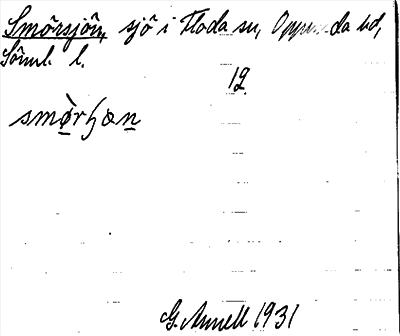 Smörsjön, sjö i Floda sn, Oppunda hd,
Söml. l.
12.
smø̀rʃɷn
G. Annell 1931